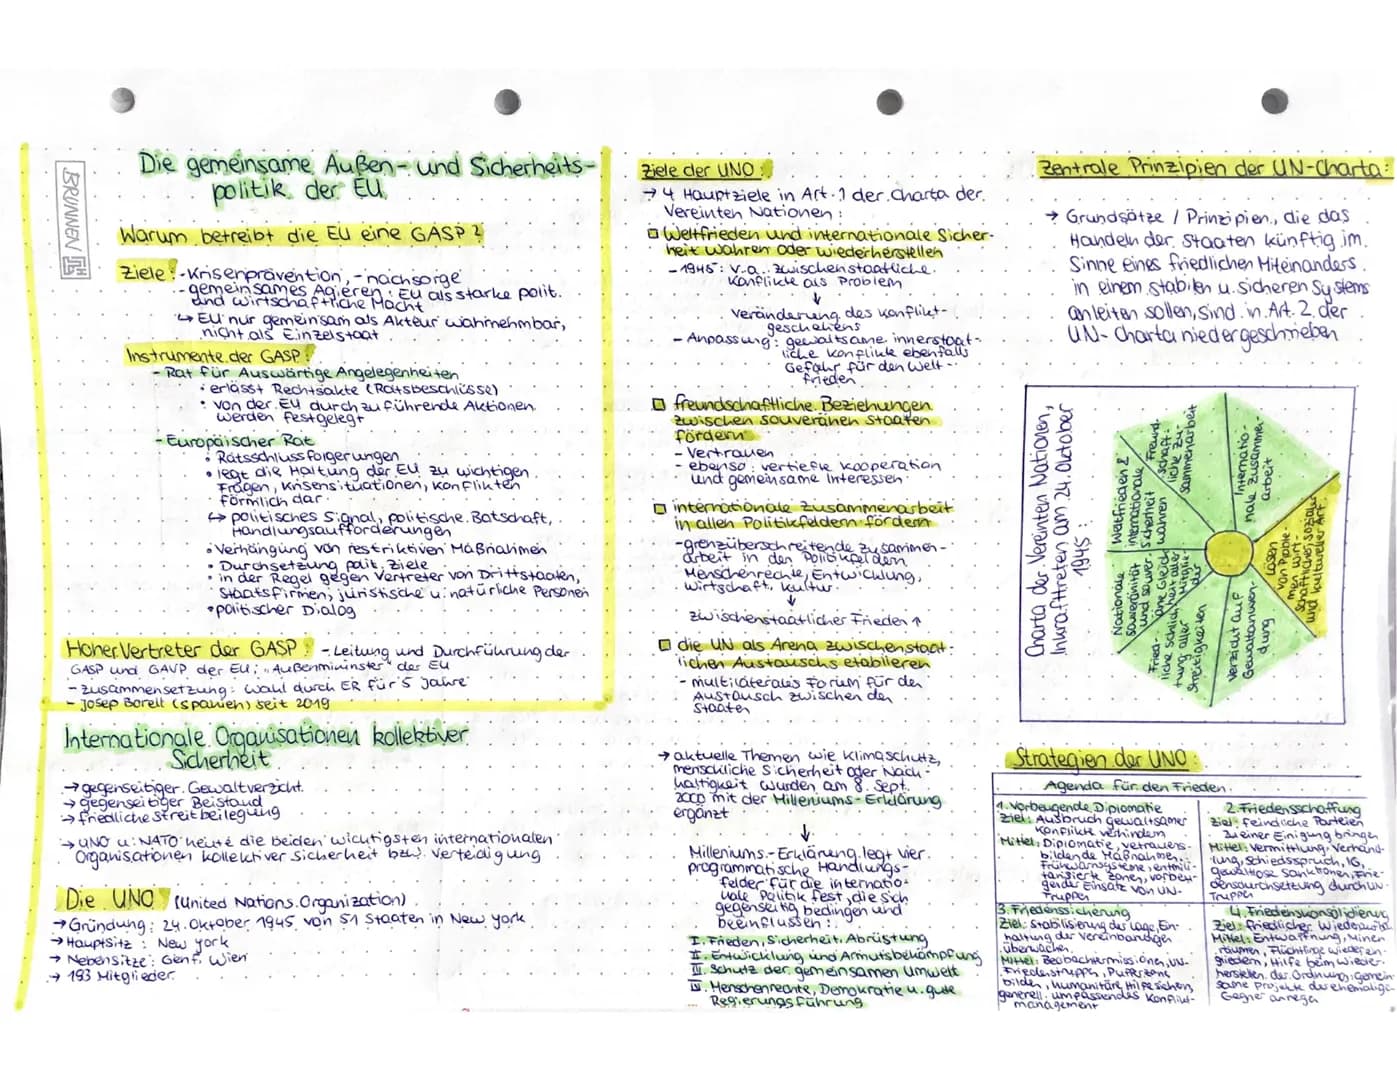 BRUNNEN
Die gemeinsame Außen- und Sicherheits-
politik der EU
Warum betreibt die EU eine GASP?
Ziele: - Krisenprävention, - nachsorge
- gemeinsames Agieren: EU als starke polit.
und wirtschaftliche Macht
↳ EU nur gemeinsam als Akteur wahrnehmbar,
nicht als Einzelstaat
Instrumente der GASP:
- Rat für Auswärtige Angelegenheiten
• erlässt Rechtsakte (Ratsbeschlüsse)
• von der EU durchzuführende Aktionen
werden festgelegt
- Europäischer Rat
• Ratsschlussfolgerungen
• legt die Haltung der EU zu wichtigen
Fragen, Krisensituationen, Konflikten
förmlich dar
↪ politisches Signal, politische Botschaft,
Handlungsaufforderungen
• Verhängung von restriktiven Maßnahmen
• Durchsetzung polit. Ziele
• in der Regel gegen Vertreter von Drittstaaten,
Staatsfirmen, juristische u. natürliche Personen
• politischer Dialog
Hoher Vertreter der GASP: - Leitung und Durchführung der
GASP und GAVP der EU; "Außenmininster" der EU
- Zusammensetzung: Wahl durch ER für 5 Jahre
- Josep Borell (Spanien) seit 2019
Internationale Organisationen kollektiver
Sicherheit
→ gegenseitiger Gewaltverzicht
→ gegenseitiger Beistand
→ friedliche Streitbeilegung
→ UNO u. NATO heute die beiden wichtigsten internationalen
Organisationen kollektiver Sicherheit bzw. Verteidigung
Die UNO (United Nations Organization)
→ Gründung: 24. Oktober 1945 von 51 Staaten in New York
→ Hauptsitz: New York
→ Nebensitze: Genf, Wien
→ 193 Mitglieder
Ziele der UNO:
→ 4 Hauptziele in Art. 1 der Charta der
Vereinten Nationen:
Weltfrieden und internationale Sicher-
heit wahren oder wiederherstellen
- 1945: v.a. zwischenstaatliche
Konflikte als Problem
↓
Veränderung des Konflikt-
geschehens
- Anpassung: gewaltsame innerstaat-
liche Konflikte ebenfalls
Gefahr für den Welt-
frieden
freundschaftliche Beziehungen
zwischen souveränen Staaten
fördern
- Vertrauen
- ebenso: vertiefte Kooperation
und gemeinsame Interessen
internationale Zusammenarbeit
in allen Politikfeldern fördern
- grenzüberschreitende Zusammen-
arbeit in den Politikfeldern
Menschenrechte, Entwicklung,
Wirtschaft, Kultur
↓
zwischenstaatlicher Frieden ↑
die UN als Arena zwischenstaat-
lichen Austauschs etablieren
- multilaterales Forum für den
Austausch zwischen den
Staaten
→ aktuelle Themen wie Klimaschutz,
menschliche Sicherheit oder Nach-
haltigkeit wurden am 8. Sept.
2000 mit der Milleniums-Erklärung
ergänzt
↓
Milleniums-Erklärung legt vier
programmatische Handlungs-
felder für die internatio-
nale Politik fest, die sich
gegenseitig bedingen und
beeinflussen:
I. Frieden, Sicherheit, Abrüstung
II. Entwicklung und Armutsbekämpfung
III. Schutz der gemeinsamen Umwelt
IV. Menschenrechte, Demokratie u. gute
Regierungsführung
Zentrale Prinzipien der UN-Charta:
→ Grundsätze / Prinzipien, die das
Handeln der Staaten künftig im
Sinne eines friedlichen Miteinanders
in einem stabilen u. sicheren Systems
anleiten sollen, sind in Art. 2 der
UN-Charta niedergeschrieben
Charta der Vereinten Nationen,
Inkrafttreten am 24. Oktober
1945:
Weltfrieden &
internationale
Sicherheit
wahren
Freund-
schaft-
liche Zu-
sammenarbeit
Internatio-
nale Zusammen-
arbeit
Lösen
von Proble-
men wirt-
schaftlicher, sozialer
und kultureller Art
Verzicht auf
Gewaltanwen-
dung
Fried-
liche Schlich-
tung aller
Streitigkeiten
Nationale
Souveränität
und souver-
äne Gleich-
heit aller
Mitglie-
der
Strategien der UNO:
Agenda für den Frieden
1. Vorbeugende Diplomatie
Ziel: Ausbruch gewaltsamer
Konflikte verhindern
Mittel: Diplomatie, vertrauens-
bildende Maßnahmen,
Frühwarnsysteme, entmili-
tarisierte Zonen, vorbeu-
gender Einsatz von UN-
Truppen
2. Friedensschaffung
Ziel: feindliche Parteien
zu einer Einigung bringen
Mittel: Vermittlung, Verhand-
lung, Schiedsspruch, IG,
gewaltlose Sanktionen, Frie-
densdurchsetzung durch UN-
Truppen
3. Friedenssicherung
Ziel: Stabilisierung der Lage, Ein-
haltung der Vereinbarungen
überwachen
Mittel: Beobachtermissionen, UN-
Friedenstruppen, Pufferzone
bilden, humanitäre Hilfe sichern,
generell umpassendes Konflikt-
management
4. Friedenskonsolidierung
Ziel: friedlicher Wiederaufbau
Mittel: Entwaffnung, Minen
räumen, Flüchtlinge wiederein-
gliedern, Hilfe beim Wieder-
herstellen der Ordnung, gemein-
same Projekte der ehemaligen
Gegner anregen